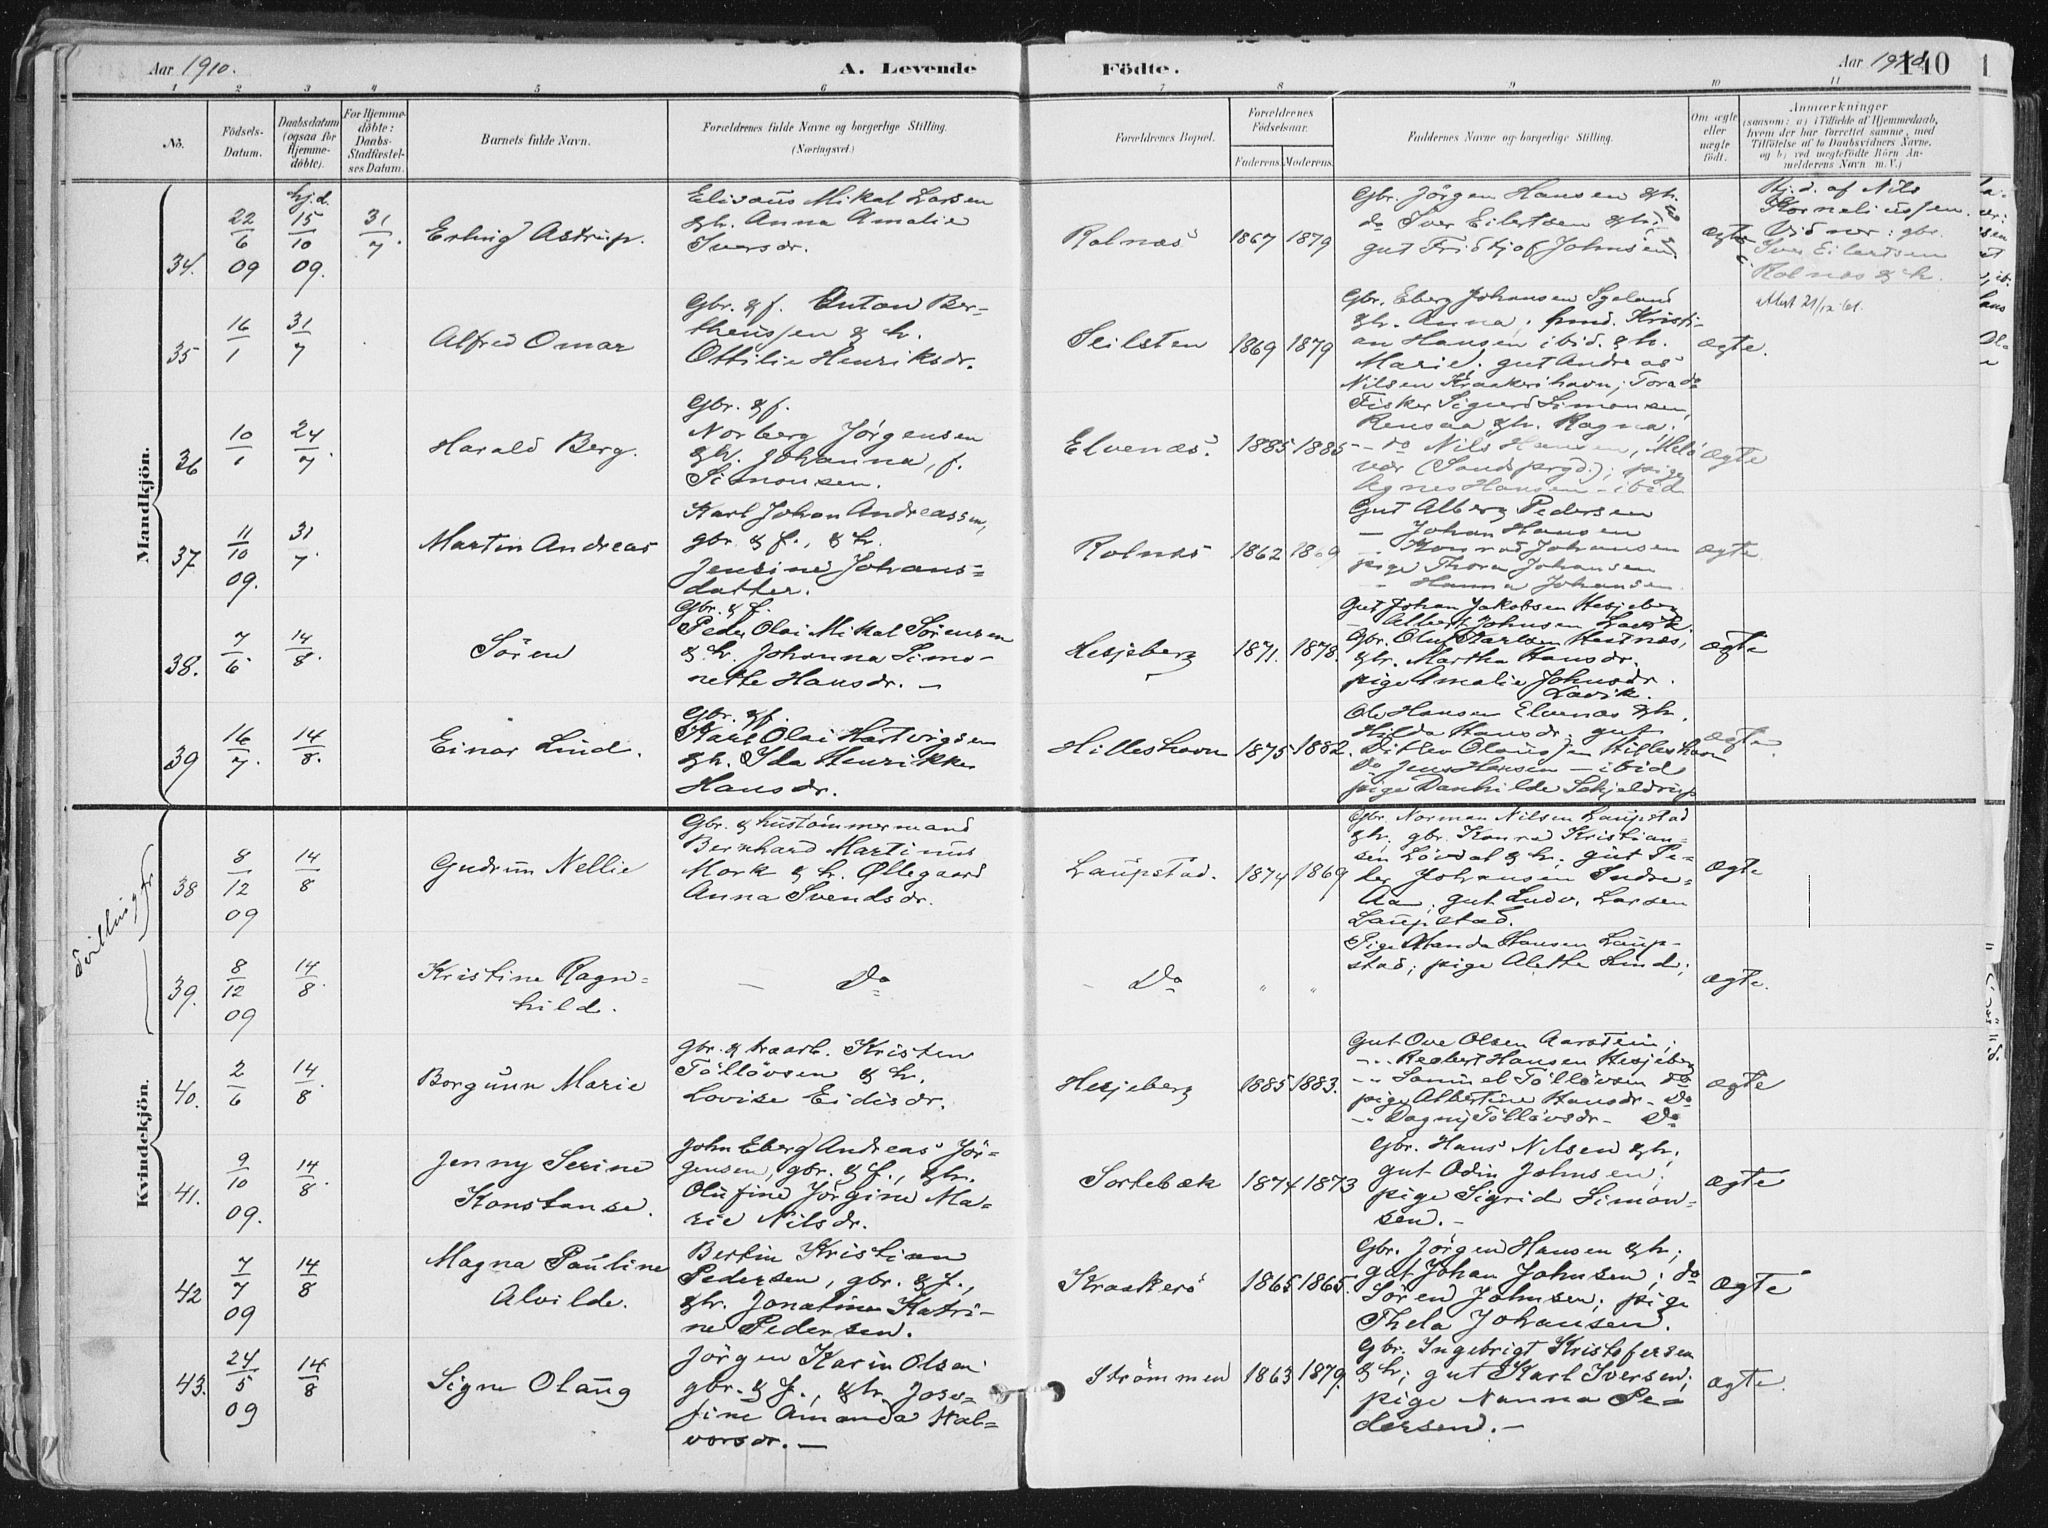 Aar 1910.
A. Levende
Födte.
Aar 1910.
140
1 2 3 4 5 6 7 8 9 10 11
No.
Födsels-
Datum.
Daabsdatum
(ogsaa for
Hjemme-
döbte).
For Hjemme-
döbte:
Daabs-
Stadfæstel-
ses Datum.
Barnets fulde Navn.
Forældrenes fulde Navne og borgerlige Stilling.
(Næringsvei.)
Forældrenes Bopæl.
Forældrenes
Födselsaar.
Faderens. Moderens.
Faddernes Navne og borgerlige Stilling.
Om ægte
eller
uægte
født.
Anmærkninger
(saasom: a) i Tilfælde af Hjemmedaab,
hvem der har forrettet samme, med
Tilföielse af to Daabsvidners Navne,
og b) ved uægtefödte Börn An-
melderens Navn m. V.)
Mandkjön.
34.
22
6
09
hj.d.
15
10
09.
31
7.
Erling Astrup.
Elisæus Mikal Larsen
& h. Anna Amalie
Iversdr.
Rolnæs
1867 1879
Gbr. Jörgen Hansen & h.
do Iver Eilertsen & h.
gut Fridtjof Johnsen
ægte
Hj.d. af Nils
Korneliussen.
Vidner: gbr.
Iver Eilertsen
Rolnæs & h.
35
16
1
31
7
Alfred Omar
Gbr. & f. Anton Ber-
theussen & h.
Ottilie Henriksdr.
Seilsten
1869 1879
Gbr. Eberg Johansen
& h. Anna; Kristi-
an Hansen ibid. & h.
Marie; gut Andreas
Nilsen Kraakerihavn; Tora do
ægte.
Attest 21/12 61.
36
10
1
24
7.
Harald Berg.
Gbr. & f.
Norberg Jörgensen
& h. Johanna, f.
Simonsen.
Elvenæs.
1885 1885
Fisker Sigurd Simonsen,
Rensaa & h. Ragna.
- do Nils Hansen, Melö
vær (Sands prgd.); pige
Agnes Hansen - ibid
ægte
37
11
10
09.
31
7
Martin Andreas
Karl Johan Andreassen,
gbr. & f., & h.
Jensine Johans-
datter.
Rolnæs
1862
Gut Alberg Pedersen
- Johan Hansen
- Konrad Johansen
pige Thora Johansen
- Hanna Johansen
ægte.
38.
7
6
14
8.
Sören
Gbr. & f.
Peder Olai Mikal Sörensen
& h. Johanna Simo-
nette Hansdr. -
Hesjeberg
1871. 1878.
Gut Johan Jakobsen Hesjeberg
- Albert Johnsen Lavik.
Gbr. Oluf Karlsen Hestnæs,
& h. Martha Hansdr.
pige Amalie Johnsdr.
Lavik.
ægte
39
16
7.
14
8.
Einar Lind.
Gbr. & f.
Karl Olai Hartvigsen
& h. Ida Henrikke
Hansdr.
Hilleshavn
1875 1882.
Ole Hansen Elvenæs & h.
Hilda Hansdr. gut
Ditlev Olaussen Hilleshavn
do Jens Hansen - ibid
pige Danhilde Schjeldrup
ægte.
Kvindekjön.
Tvillinger
38
8
12
09
14
8
Gudrun Nellie
Gbr. & hustömmermand
Bernhard Martinus
Mork & h. Øllegaard
Anna Svendsdr.
Laupstad.
1874 1869
Gbr. Norman Nilsen Laupstad
& h; gbr. Konrad Kristian-
sen Lövdal & h; gut Pe-
der Johansen Indre-
Aa; gut Ludv. Larsen
Laupstad.
ægte
39.
8
12
09
14
8.
Kristine Ragn-
hild.
- Do
- Do
" "
Pige Handa Hansen Laup-
stad; pige Alette Lind;
ægte.
40.
2
6
14
8.
Borgunn Marie
Gbr. & træarb. Kristen
Töllövsen & h.
Lovise Eidisdr.
Hesjeberg
1885 1883.
Gut Ove Olsen Aarstein;
-"- Reabert Hansen Hesjeberg
-"- Samuel Töllövsen do
pige Albertine Hansdr - Do
-"- Dagny Töllövsdr - Do
ægte
41.
9
10
09.
14
8.
Jenny Serine
Konstanse.
John Eberg Andreas Jör-
gensen, gbr. & f., & h.
Olufine Jörgine Ma-
rie Nilsdr.
Sortebæk
1874 1873
Gbr. Hans Nilsen & h.
gut Odin Johnsen;
pige Sigrid Simon-
sen. -
ægte
42
7
7
09
14
8
Magna Pauline
Alvilde.
Bertin Kristian
Pedersen, gbr. & f.,
& h. Jonatine Katri-
ne Pedersen.
Kraakerö
1865 1865.
Gbr. Jörgen Hansen & h;
gut Johan Johnsen; do
Sören Johnsen; pige
Thela Johansen.
ægte
43.
24
5
09
14
8
Signe Olaug
Jörgen Karin Olsen
gbr. & f., & h. Jose-
fine Amanda Hal-
vorsdr. -
Strömmen
1863 1879.
Gbr. Ingebrigt Kristofersen
& h; gut Karl Iversen;
pige Nanna Pe-
dersen. -
ægte.